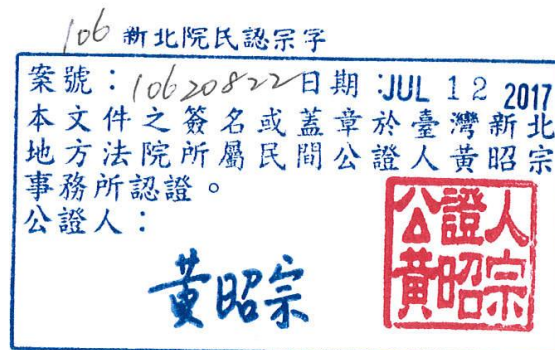 106 新北院民認宗字
案號：10620822日期：JUL 12 2017
本文件之簽名或蓋章於臺灣新北
地方法院所屬民間公證人黃昭宗
事務所認證。
公證人：
黃昭宗
公證人
黃昭宗